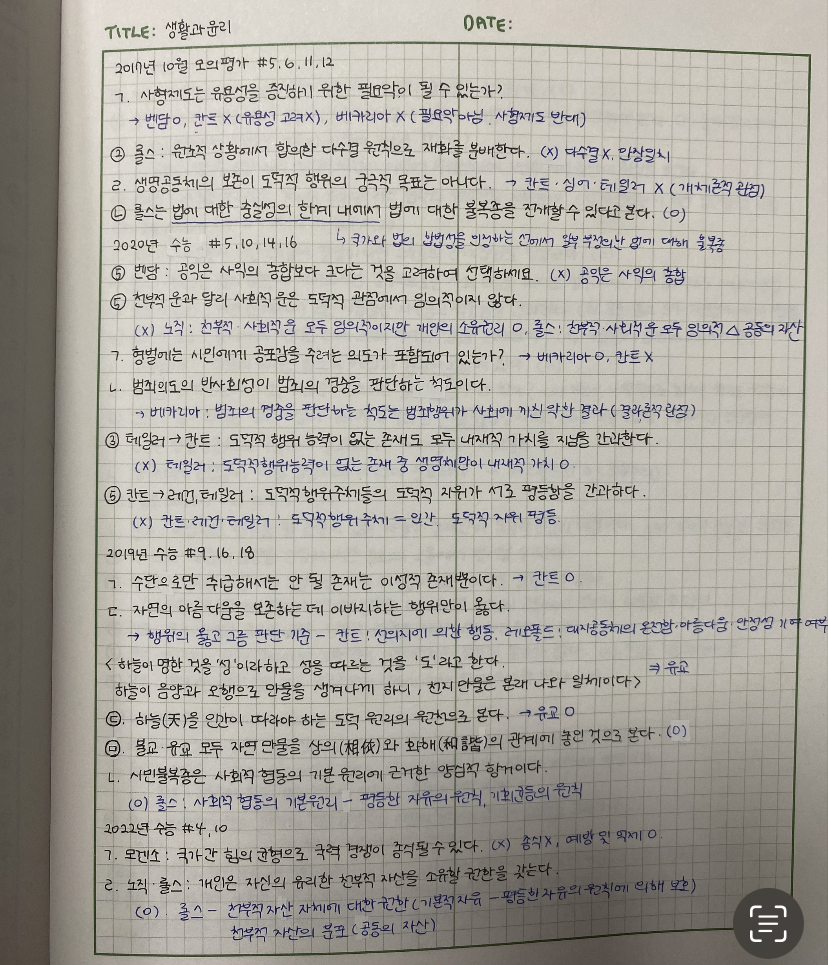 TITLE: 생활과윤리 DATE:
2017년 10월 모의평가 #5, 6, 11, 12
ㄱ. 사형제도는 유용성을 증진하기 위한 필요악이 될 수 있는가?
→ 벤담 O, 칸트 X (유용성 고려 X), 베카리아 X (필요악 아님, 사형제도 반대)
③ 롤스 : 원초적 상황에서 합의한 다수결 원칙으로 재화를 분배한다. (X) 다수결 X, 만장일치
ㄹ. 생명공동체의 보존이 도덕적 행위의 궁극적 목표는 아니다. → 칸트·싱어·테일러 X (개체론적 관점)
㉡ 롤스는 법에 대한 충실성의 한계 내에서 법에 대한 불복종을 전개할 수 있다고 본다. (O)
2020년 수능 #5, 10, 14, 16 ↳ 국가와 법의 합법성을 인정하는 선에서 일부 부정의한 법에 대해 불복종
⑤ 벤담 : 공익은 사익의 총합보다 크다는 것을 고려하여 선택하세요. (X) 공익은 사익의 총합
⑤ 천부적 운과 달리 사회적 운은 도덕적 관점에서 임의적이지 않다.
(X) 노직 : 천부적·사회적 운 모두 임의적이지만 개인의 소유권리 O, 롤스 : 천부적·사회적 운 모두 임의적 △ 공동의 자산
ㄱ. 형벌에는 시민에게 공포감을 주려는 의도가 포함되어 있는가? → 베카리아 O, 칸트 X
ㄴ. 범죄의도의 반사회성이 범죄의 경중을 판단하는 척도이다.
→ 베카리아 : 범죄의 경중을 판단하는 척도는 범죄행위가 사회에 끼친 악한 결과 (결과론적 관점)
③ 테일러 → 칸트 : 도덕적 행위 능력이 없는 존재도 모두 내재적 가치를 지님을 간과한다.
(X) 테일러 : 도덕적행위능력이 없는 존재 중 생명체만이 내재적 가치 O
⑤ 칸트 → 레건, 테일러 : 도덕적행위주체들의 도덕적 지위가 서로 평등함을 간과하다.
(X) 칸트·레건·테일러 : 도덕적행위 주체 = 인간, 도덕적 지위 평등
2019년 수능 #9, 16, 18
ㄱ. 수단으로만 취급해서는 안 될 존재는 이성적 존재뿐이다. → 칸트 O
ㄷ. 자연의 아름다움을 보존하는 데 이바지하는 행위만이 옳다.
→ 행위의 옳고 그름 판단 기준 - 칸트 : 선의지에 의한 행동, 레오폴드 : 대지공동체의 온전함·아름다움·안정성 기여 여부
< 하늘이 명한 것을 '성'이라하고 성을 따르는 것을 '도'라고 한다.
하늘이 음양과 오행으로 만물을 생겨나게 하니, 천지만물은 본래 나와 일체이다> ⇒ 유교
㉢. 하늘(天)을 인간이 따라야 하는 도덕 원리의 원천으로 본다. → 유교 O
㉤. 불교·유교 모두 자연 만물을 상의(相依)와 화해(和諧)의 관계에 놓인 것으로 본다. (O)
ㄴ. 시민불복종은 사회적 협동의 기본 원리에 근거한 양심적 항거이다.
(O) 롤스 : 사회적 협동의 기본원리 - 평등한 자유의 원칙, 기회균등의 원칙
2022년 수능 #4, 10
ㄱ. 모겐소 : 국가간 힘의 균형으로 국력 경쟁이 종식될 수 있다. (X) 종식 X, 예방 및 억제 O
ㄹ. 노직·롤스 : 개인은 자신의 유리한 천부적 자산을 소유할 권한을 갖는다.
(O) 롤스 - 천부적자산 자체에 대한 권한 (기본적자유 - 평등한 자유의 원칙에 의해 보호)
천부적 자산의 분포 (공동의 자산)